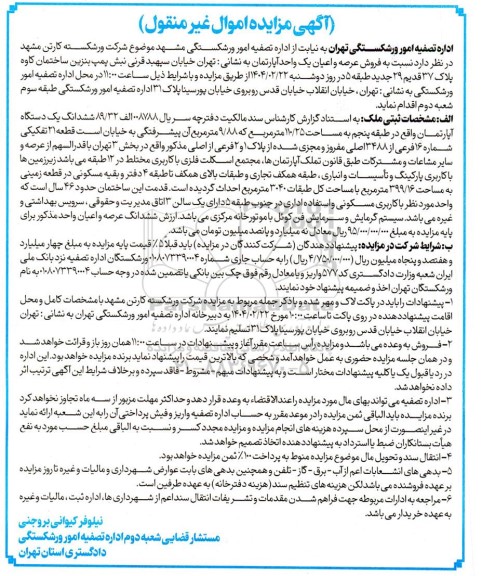 (آگهی مزایده اموال غیر منقول)
اداره تصفیه امور ورشکستگی تهران به نیابت از اداره تصفیه امور ورشکستگی مشهد موضوع شرکت ورشکسته کارتن مشهد
در نظر دارد نسبت به فروش عرصه و اعیان یک واحد آپارتمان به نشانی: تهران خیابان سپهبد قرنی نبش پمپ بنزین ساختمان کاوه
پلاک ۳۷ قدیم ۲۹ جدید طبقه ۵ در روز دوشنبه ۱۴۰۴/۰۲/۲۲ از طریق مزایده و با شرایط ذیل ساعت ۱۱:۰۰ در محل اداره تصفیه امور
ورشکستگی به نشانی: تهران، خیابان انقلاب خیابان قدس روبروی خیابان پورسینا پلاک ۳۱ اداره تصفیه امور ورشکستگی طبقه سوم
شعبه دوم اقدام نماید.
الف: مشخصات ثبتی ملک: به استناد گزارش کارشناس سند مالکیت دفترچه سریال ۰۰۸۷۸۸ الف ۸۹/۳۲ ششدانگ یک دستگاه
آپارتمان واقع در طبقه پنجم به مساحت ۱۰/۲۵ مترمربع که ۹/۸۸ مترمربع آن پیشرفتگی به خیابان است قطعه ۲۱ تفکیکی
شماره ۱۶ فرعی از ۳۴۸۸ اصلی مفروز و مجزی شده از پلاک ۱ و ۲ فرعی از اصلی مذکور واقع در بخش ۳ تهران با قدرالسهم از عرصه و
سایر مشاعات و مشترکات طبق قانون تملک آپارتمان ها، مجتمع اسکلت فلزی با کاربری مختلط در ۱۳ طبقه می باشد زیرزمین ها
با کاربری پارکینگ و تأسیسات و انباری، طبقه همکف تجاری و طبقات بالای همکف تا طبقه ۴ دفتر و بقیه مسکونی در قطعه زمینی
به مساحت ۳۹۹/۱۶ مترمربع با مساحت کل طبقات ۳۰۴۰ مترمربع احداث گردیده است. قدمت این ساختمان حدود ۴۶ سال است که
واحد مورد نظر با کاربری مسکونی و استفاده اداری در جنوب طبقه ۵ دارای یک سالن ۳ اتاق مدیریت و حقوقی، سرویس بهداشتی و
غیره می باشد. سیستم گرمایش و سرمایش فن کوئل با موتورخانه مرکزی می باشد. ارزش ششدانگ عرصه و اعیان واحد مذکور برای
پایه مزایده به مبلغ ۹۵/۰۰۰/۰۰۰/۰۰۰ ریال معادل نه میلیارد و پانصد میلیون تومان می باشد.
ب: شرایط شرکت در مزایده: پیشنهاد دهندگان (شرکت کنندگان در مزایده) باید قبلا ۵٪ قیمت پایه مزایده به مبلغ چهار میلیارد
و هفتصد و پنجاه میلیون ریال (۴/۷۵۰/۰۰۰/۰۰۰ ریال) را به حساب جاری شماره ۰۱۰۸۰۷۳۳۹۰۰۴ ورشکستگان اداره تصفیه نزد بانک ملی
ایران شعبه وزارت دادگستری کد ۵۷۷ واریز و یا معادل رقم فوق چک بین بانکی یا تضمین شده در وجه حساب ۰۱۰۸۰۷۳۳۹۰۰۴ به نام
ورشکستگان تهران اخذ و ضمیمه پیشنهاد خود نمایند.
۱- پیشنهادات را باید در پاکت لاک و مهر شده و با ذکر جمله مربوط به مزایده شرکت ورشکسته کارتن مشهد با مشخصات کامل و محل
اقامت پیشنهاد دهنده در روی پاکت تا ساعت ۱۰:۰۰ مورخ ۱۴۰۴/۰۲/۲۲ به دبیرخانه اداره تصفیه امور ورشکستگی تهران به نشانی: تهران
خیابان انقلاب خیابان قدس روبروی خیابان پورسینا پلاک ۳۱ تسلیم نمایند.
۲- فروش به وعده می باشد و مزایده رأس ساعت مقرر آغاز و پیشنهادات در ساعت ۱۱:۰۰ همان روز باز و قرائت خواهد شد
و در همان جلسه مزایده حضوری به عمل خواهد آمد و شخصی که بالاترین قیمت را پیشنهاد نماید برنده مزایده خواهد بود. این اداره
در رد یا قبول یک یا کلیه پیشنهادات مختار است و به پیشنهادات مبهم - مشروط - فاقد سپرده و برخلاف شرایط این آگهی ترتیب اثر
داده نخواهد شد.
۳- اداره تصفیه می تواند بهای مال مورد مزایده را عندالاقتضاء به وعده قرار دهد و حداکثر مهلت مزبور از سه ماه تجاوز نخواهد کرد
برنده مزایده باید الباقی ثمن مزایده را در موعد مقرر به حساب اداره تصفیه واریز و فیش پرداختی آن را به این شعبه ارائه نماید
در غیر اینصورت از محل سپرده هزینه های انجام مزایده و مزایده مجدد کسر و نسبت به الباقی مبلغ حسب مورد به نفع
هیأت بستانکاران ضبط یا استرداد به پیشنهاد دهنده اتخاذ تصمیم خواهد شد.
۴- انتقال سند و تحویل مال موضوع مزایده منوط به پرداخت ۱۰۰٪ ثمن مزایده خواهد بود.
۵- بدهی های انشعابات اعم از آب - برق - گاز - تلفن و همچنین بدهی های بابت عوارض شهرداری و مالیات و غیره تا روز مزایده
بر عهده فروشنده می باشد لکن هزینه های تنظیم سند (هزینه دفترخانه) به عهده طرفین است.
۶- مراجعه به ادارات مربوطه جهت فراهم شدن مقدمات و تشریفات انتقال سند اعم از شهرداری ها، اداره ثبت، مالیات و غیره
به عهده خریدار می باشد.
نیلوفر کیوانی بروجنی
مستشار قضایی شعبه دوم اداره تصفیه امور ورشکستگی
دادگستری استان تهران